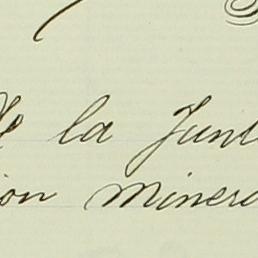 la Junt
ion Minera